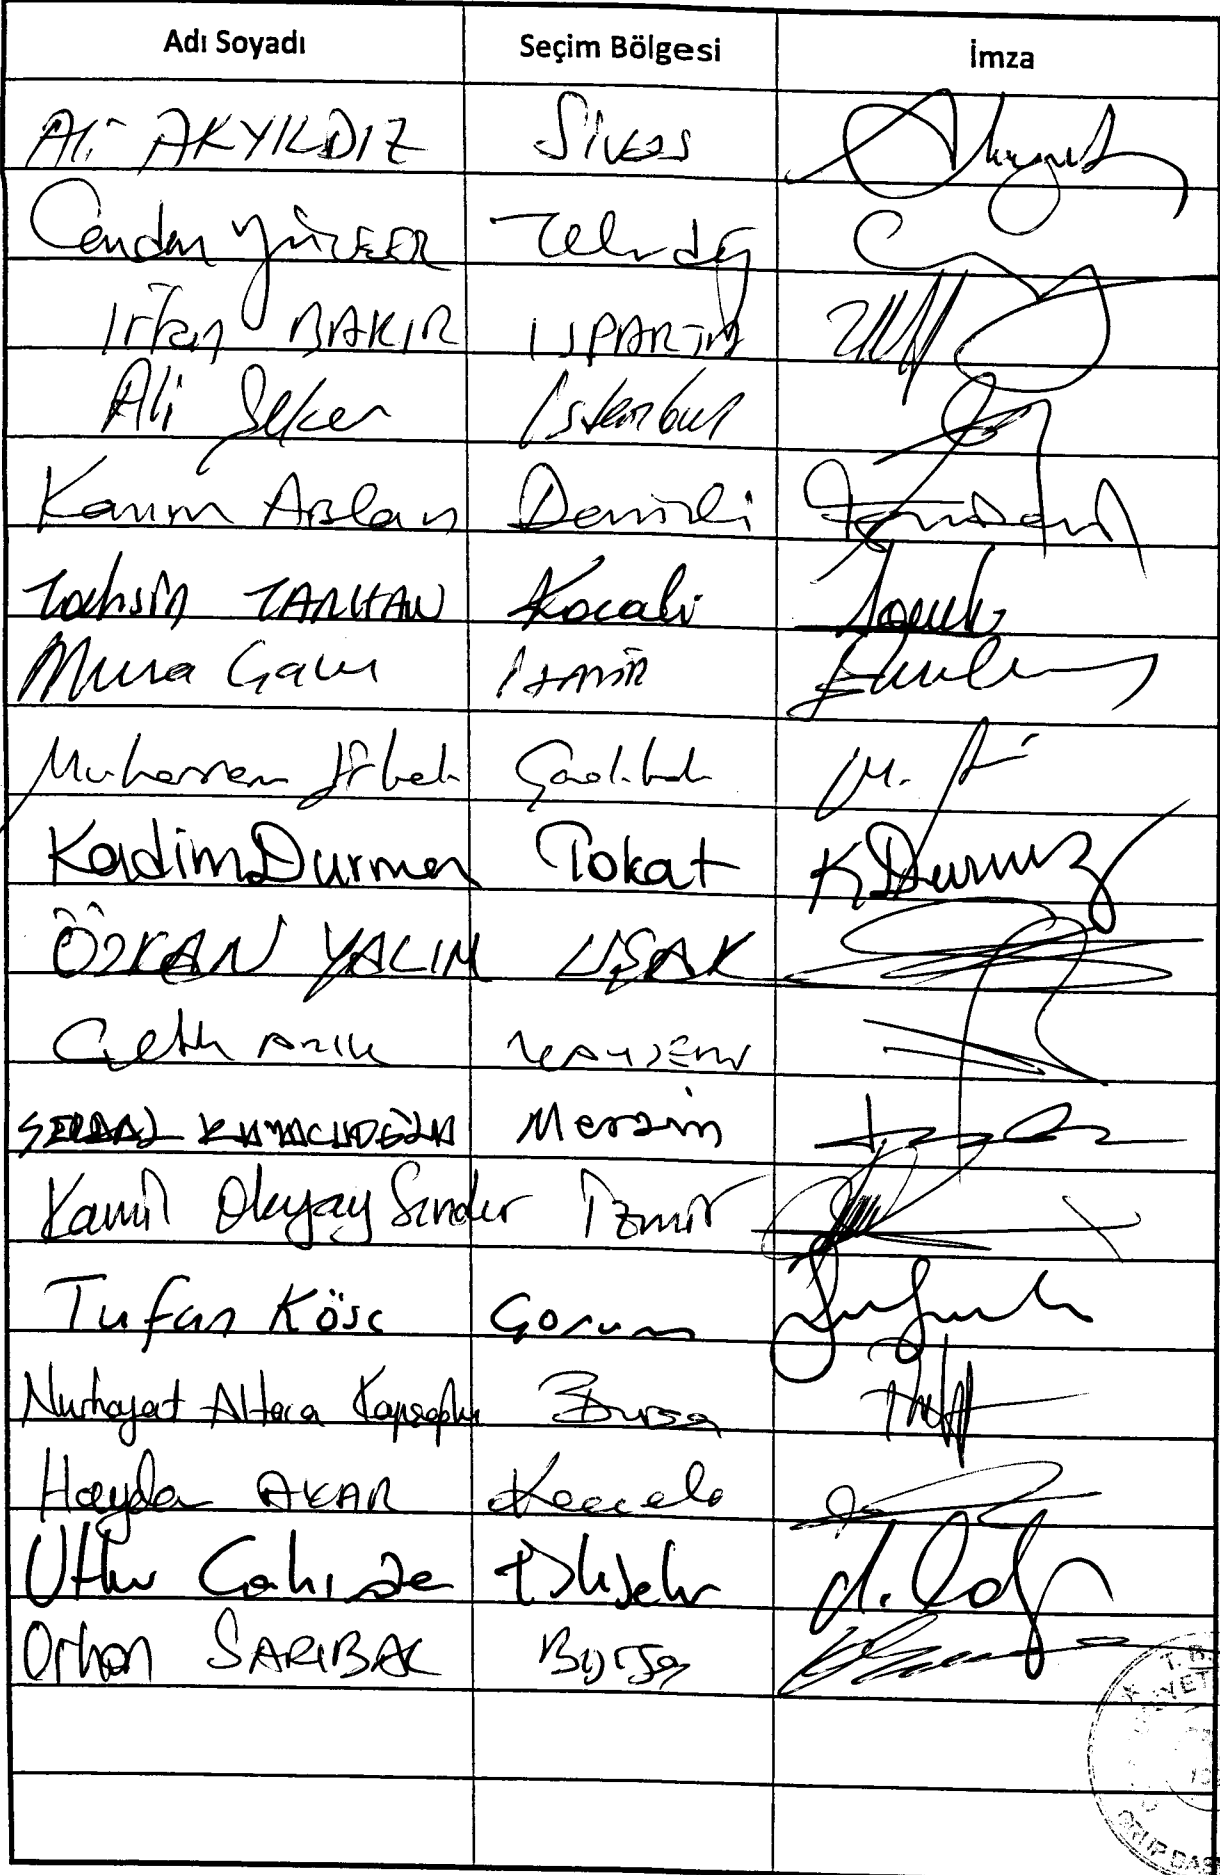 Adı Soyadı Seçim Bölgesi İmza
Ali AKYILDIZ Sivas
Candan YÜCEER Tekirdağ
İrfan BAKIR ISPARTA
Ali Şeker İstanbul
Kazım Arslan Denizli
Tahsin TARHAN Kocaeli
Musa Çam İZMİR
Muharrem Erkek Çanakkale
Kadim Durmaz Tokat K Durmaz
ÖZKAN YALIM UŞAK
Çetin ARIK KAYSERİ
SERDAL KUYUCUOĞLU Mersin
Kamil Okyay Sındır İzmir
Tufan Köse Çorum
Nurhayat Altaca Kayışoğlu Bursa
Haydar AKAR Kocaeli
Utku Çakırözer Eskişehir
Orhan SARIBAL Bursa